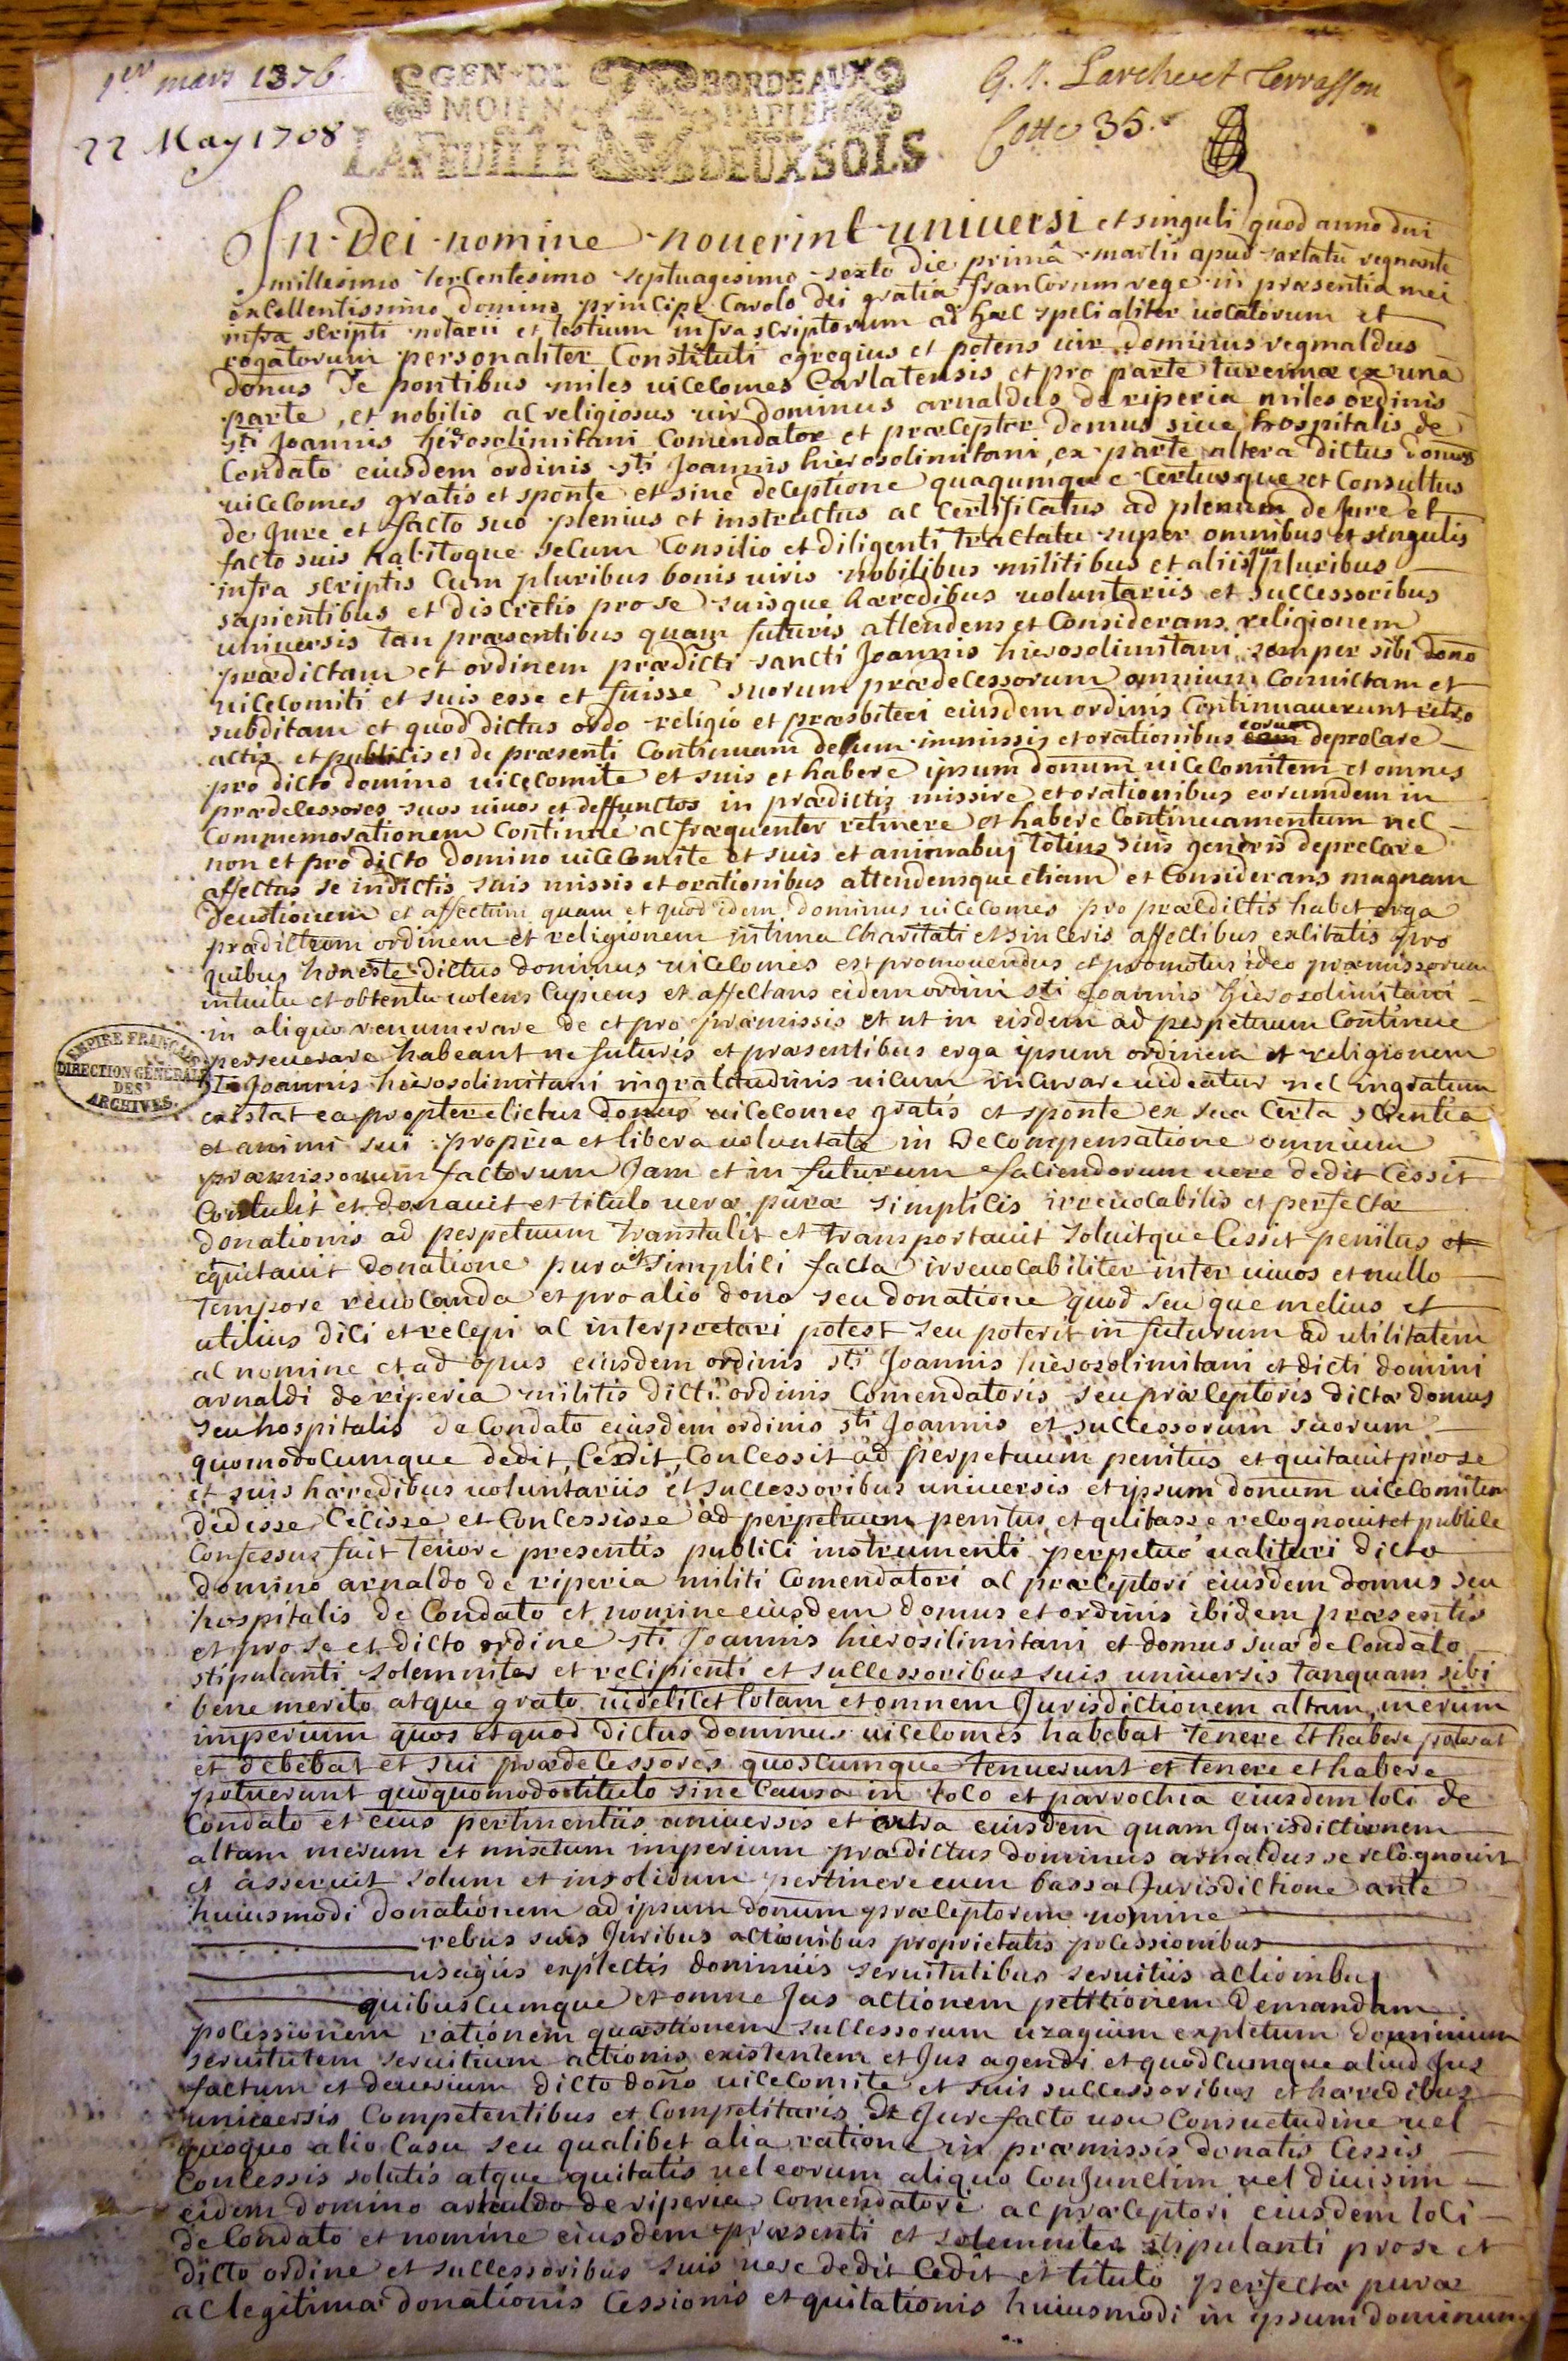 1er mars 1376.
22 May 1708
GEN. DE BORDEAUX
MOIEN PAPIER
LA FEUILLE DEUX SOLS
Cotte 35.
In Dei nomine nouerint uniuersi et singuli quod anno dni
millesimo tercentesimo septuagesimo sexto die primâ martii apud sarlatū regnante
excellentissimo domino principe Carolo dei gratia francorum rege in præsentia mei
infra scripti notarii et testium infra scriptorum ad hæc specialiter uocatorum et
rogatorum personaliter Constituti egregius et potens uir Dominus regnaldus
donus de pontibus miles uicecomes Carlatensis et pro parte turennæ ex una
parte, et nobilis ac religiosus uir dominus arnaldus de riperia miles ordinis
sti Joannis hierosolimitani Comendator et præceptor domus siue hospitalis de
Condato eiusdem ordinis sti Joannis hierosolimitani, ex parte altera dictus donus
uicecomes gratis et sponte et sine deceptione quaqumque certusque et Consultus
de Jure et facto suo plenius et instructus ac certificatus ad plenum de Jure et
facto suis habitoque secum Consilio et diligenti tractatu super omnibus et singulis
infra scriptis Cum pluribus bonis uiris nobilibus militibus et aliis pluribus
sapientibus et discretis pro se suisque hæredibus uoluntariis et successoribus
uniuersis tan præsentibus quam futuris attendens et Considerans religionem
prædictam et ordinem prædicti sancti Joannis hierosolimitani semper sibi dono
uicecomiti et suis esse et fuisse suorum prædecessorum omnium Conuictam et
subditam et quod dictus ordo religio et præsbiteri eiusdem ordinis Continuauerunt retro
actis et publicis et de præsenti Continuam deum in missis et orationibus eorum deprecare
pro dicto domino uicecomite et suis et habere ipsum donum uicecomitem et omnes
prædecessores suos uiuos et deffunctos in prædictis missire et orationibus eorumdem in
Commemorationem Continué ac fræquenter retinere et habere Continuamentum nec
non et pro dicto domino uicecomite et suis et animabus totius suis generis deprecare
affectas se indictis suis missis et orationibus attendensque etiam et Considerans magnam
deuotionem et affectum quam et quod idem dominus uicecomes pro prædictis habet erga
prædictum ordinem et religionem intima charitati et sinceris affectibus exlitatis pro
quibus honeste dictus dominus uicecomes est promouendus et promotus ideo præmissorum
intuitu et obtentu uolens Cupiens et affectans eidem ordini sti Joannis hierosolimitani
in aliquo renumerare de et pro præmissis et ut in eisdem ad perpetuum Continue
perseuerare habeant ne futuris et præsentibus erga ipsum ordinem et religionem
sti Joannis hierosolimitani ingratitudinis uicum incurrare uideatur nec ingratum
existat ea propter dictus donus uicecomes gratis et sponte ex sua certa scientia
et animi sui propria et libera uoluntate in Decompensatione omnium
præmissorum factorum Jam et in futurum faciendorum uere dedit Cessit
Contulit et donauit et titulo ueræ puræ simplicis irreuocabilis et perfectæ
donationis ad perpetuum transtulit et transportauit soluitque Cessit penitus et
quitauit donatione pura et simplici facta irreuocabiliter inter uiuos et nullo
tempore reuocanda et pro alio dono seu donatione quod seu que melius et
utilius dici et recepi ac interpretari potest seu poterit in futurum ad utilitatem
ac nomine et ad opus eiusdem ordinis sti Joannis hierosolimitani et dicti domini
arnaldi de riperia militis dicti ordinis Comendatoris seu præceptoris dictæ domus
seu hospitalis de Condato eiusdem ordinis sti Joannis et successorum suorum
quomodocumque dedit, Cedit, Concessit ad perpetuum penitus et quitauit pro se
et suis hæredibus uoluntariis et successoribus uniuersis et ipsum donum uicecomitem
dedisse Cecisse et Concessisse ad perpetuum penitus et quitasse recognouit et publice
Confessus fuit tenore presentis publici instrumenti perpetuo ualituri dicto
domino arnaldo de riperia militi Comendatori ac præceptori eiusdem domus seu
hospitalis de Condato et nomine eiusdem domus et ordinis ibidem præsentis
et pro se et dicto ordine sti Joannis hierosilimitani et domus suæ de Condato
stipulanti solemniter et recipienti et successoribus suis uniuersis tanquam sibi
bene merito atque grato uidelicet totam et omnem Jurisdictionem altam, merum
imperium quos et quod dictus dominus uicecomes habebat tenere et habere poterat
et debebat et sui prædecessores quoscumque tenuerunt et tenere et habere
potuerunt quoquomodo titulo sine Causa in loco et parrochia eiusdem loci de
Condato et eius pertinentiis uniuersis et extra eiusdem quam Jurisdictionem
altam merum et mixtum imperium prædictus dominus arnaldus se recognouit
et asseruit solum et insolidum pertinere cum bassa Jurisdictione ante
huiusmodi donationem ad ipsum donum præceptorem nomine
rebus suis Juribus actionibus proprietatis pocessionibus
usagiis explectis dominiis seruitutibus seruitiis actionibus
quibuscumque et omne Jus actionem petitionem Demandam
pocessionem rationem quæstionem successorum uzagium expletum dominium
seruitutem seruitium actionis existentem et Jus agendi et quodcumque aliud Jus
factum et deuerium dicto dono uicecomite et suis successoribus et hæredibus
uniuersis Competentibus et Competituris de Jure facto usu Consuetudine uel
quoquo alio Casu seu qualibet alia ratione in præmissis donatis Cessis
Concessis solutis atque quitatis uel eorum aliquo Conjunctim uel diuisim
eidem domino arnaldo de riperia Comendatori ac præceptori eiusdem loci
de Condato et nomine eiusdem præsenti et solemniter stipulanti pro se et
dicto ordine et successoribus suis uere dedit Cedit et titulo perfectæ puræ
ac legitimæ donationis Cessionis et quitationis huiusmodi in ipsum dominum
EMPIRE FRANÇAIS
DIRECTION GÉNÉRALE
DES
ARCHIVES.